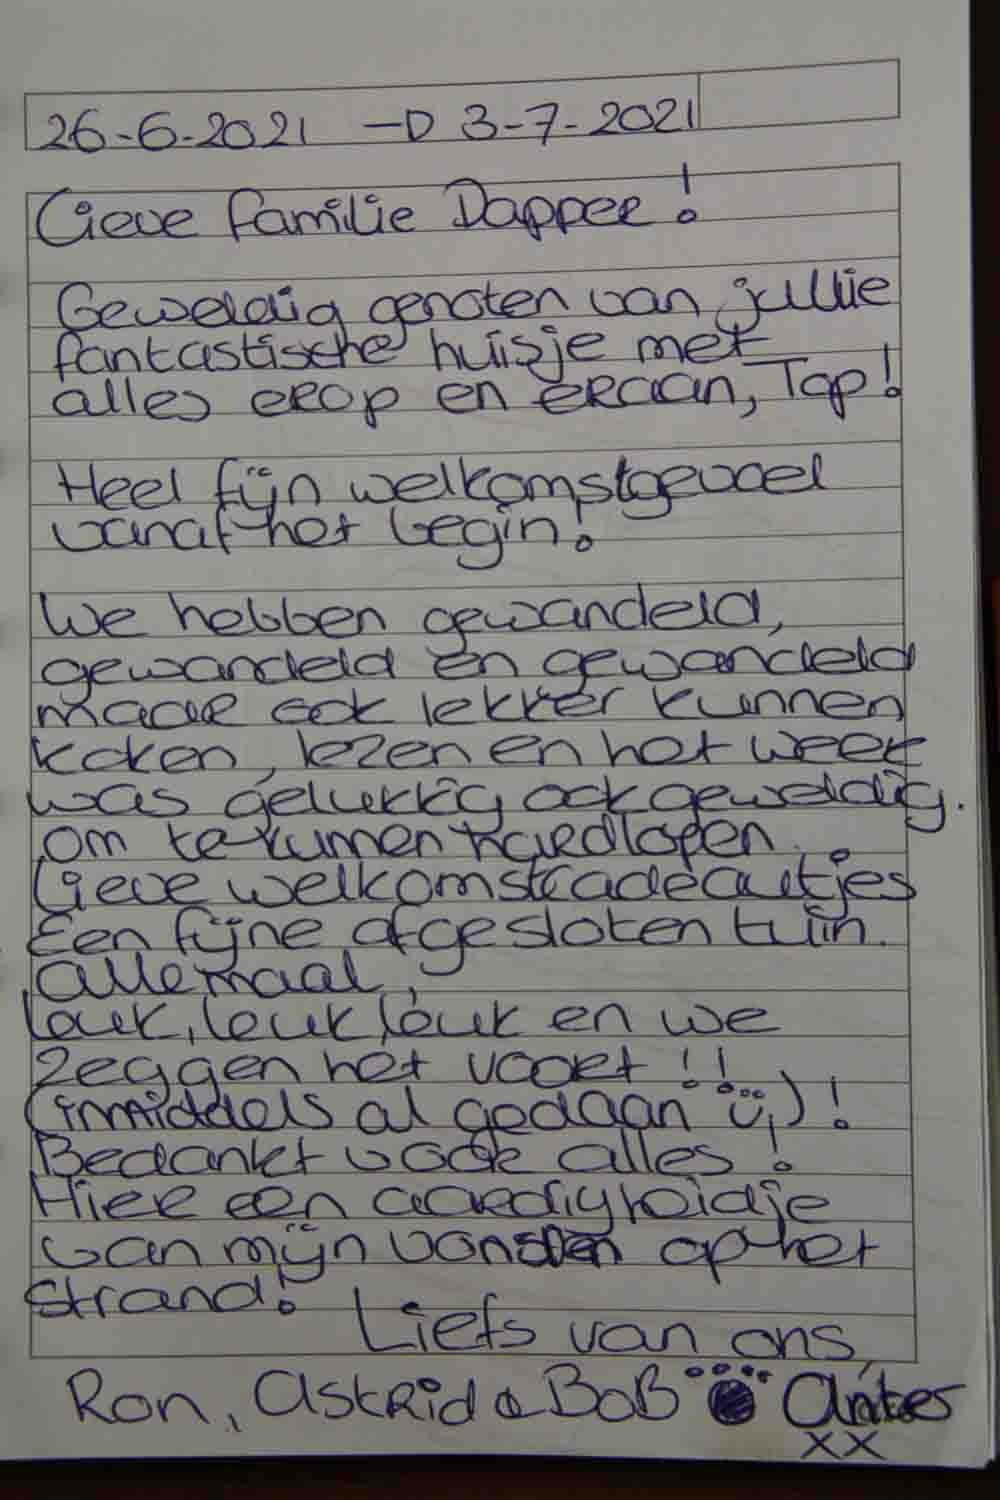 26-6-2021 —D 3-7-2021
Lieve familie Dapper!
Geweldig genoten van jullie
fantastische huisje met
alles erop en eraan, Top!
Heel fijn welkomstgevoel
vanaf het begin!
We hebben gewandeld,
gewandeld en gewandeld
maar ook lekker kunnen
koken, lezen en het weer
was gelukkig ook geweldig.
om te kunnen hardlopen.
Lieve welkomstcadeautjes
Een fijne afgesloten tuin.
allemaal,
leuk, leuk, leuk en we
zeggen het voort!!
(inmiddels al gedaan ü)!
Bedankt voor alles!
Hier een aardigheidje
van mijn vonsten op het
strand!
Liefs van ons,
Ron, Astrid & Bob
xx